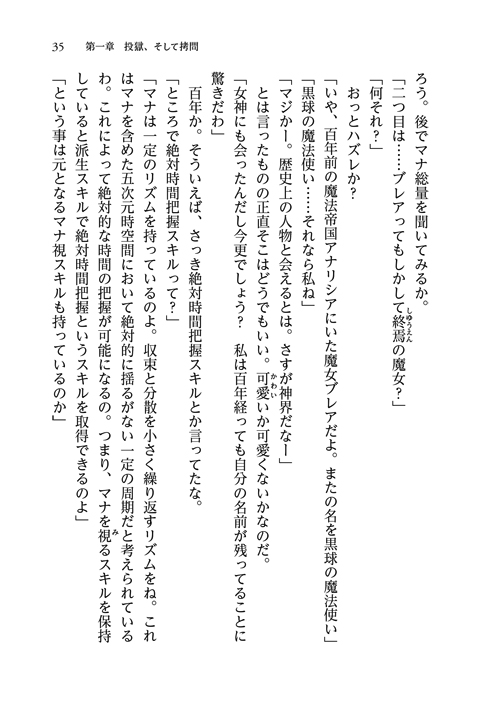 35　第一章　投獄、そして拷問
ろう。後でマナ総量を聞いてみるか。
「二つ目は……ブレアってもしかして終焉の魔女？」
「何それ？」
おっとハズレか？
「いや、百年前の魔法帝国アナリシアにいた魔女ブレアだよ。またの名を黒球の魔法使い」
「黒球の魔法使い……それなら私ね」
「マジかー。歴史上の人物と会えるとは。さすが神界だなー」
とは言ったものの正直そこはどうでもいい。可愛いか可愛くないかなのだ。
「女神にも会ったんだし今更でしょう？　私は百年経っても自分の名前が残ってることに
驚きだわ」
百年か。そういえば、さっき絶対時間把握スキルとか言ってたな。
「ところで絶対時間把握スキルって？」
「マナは一定のリズムを持っているのよ。収束と分散を小さく繰り返すリズムをね。これ
はマナを含めた五次元時空間において絶対的に揺るがない一定の周期だと考えられている
わ。これによって絶対的な時間の把握が可能になるの。つまり、マナを視るスキルを保持
していると派生スキルで絶対時間把握というスキルを取得できるのよ」
「という事は元となるマナ視スキルも持っているのか」